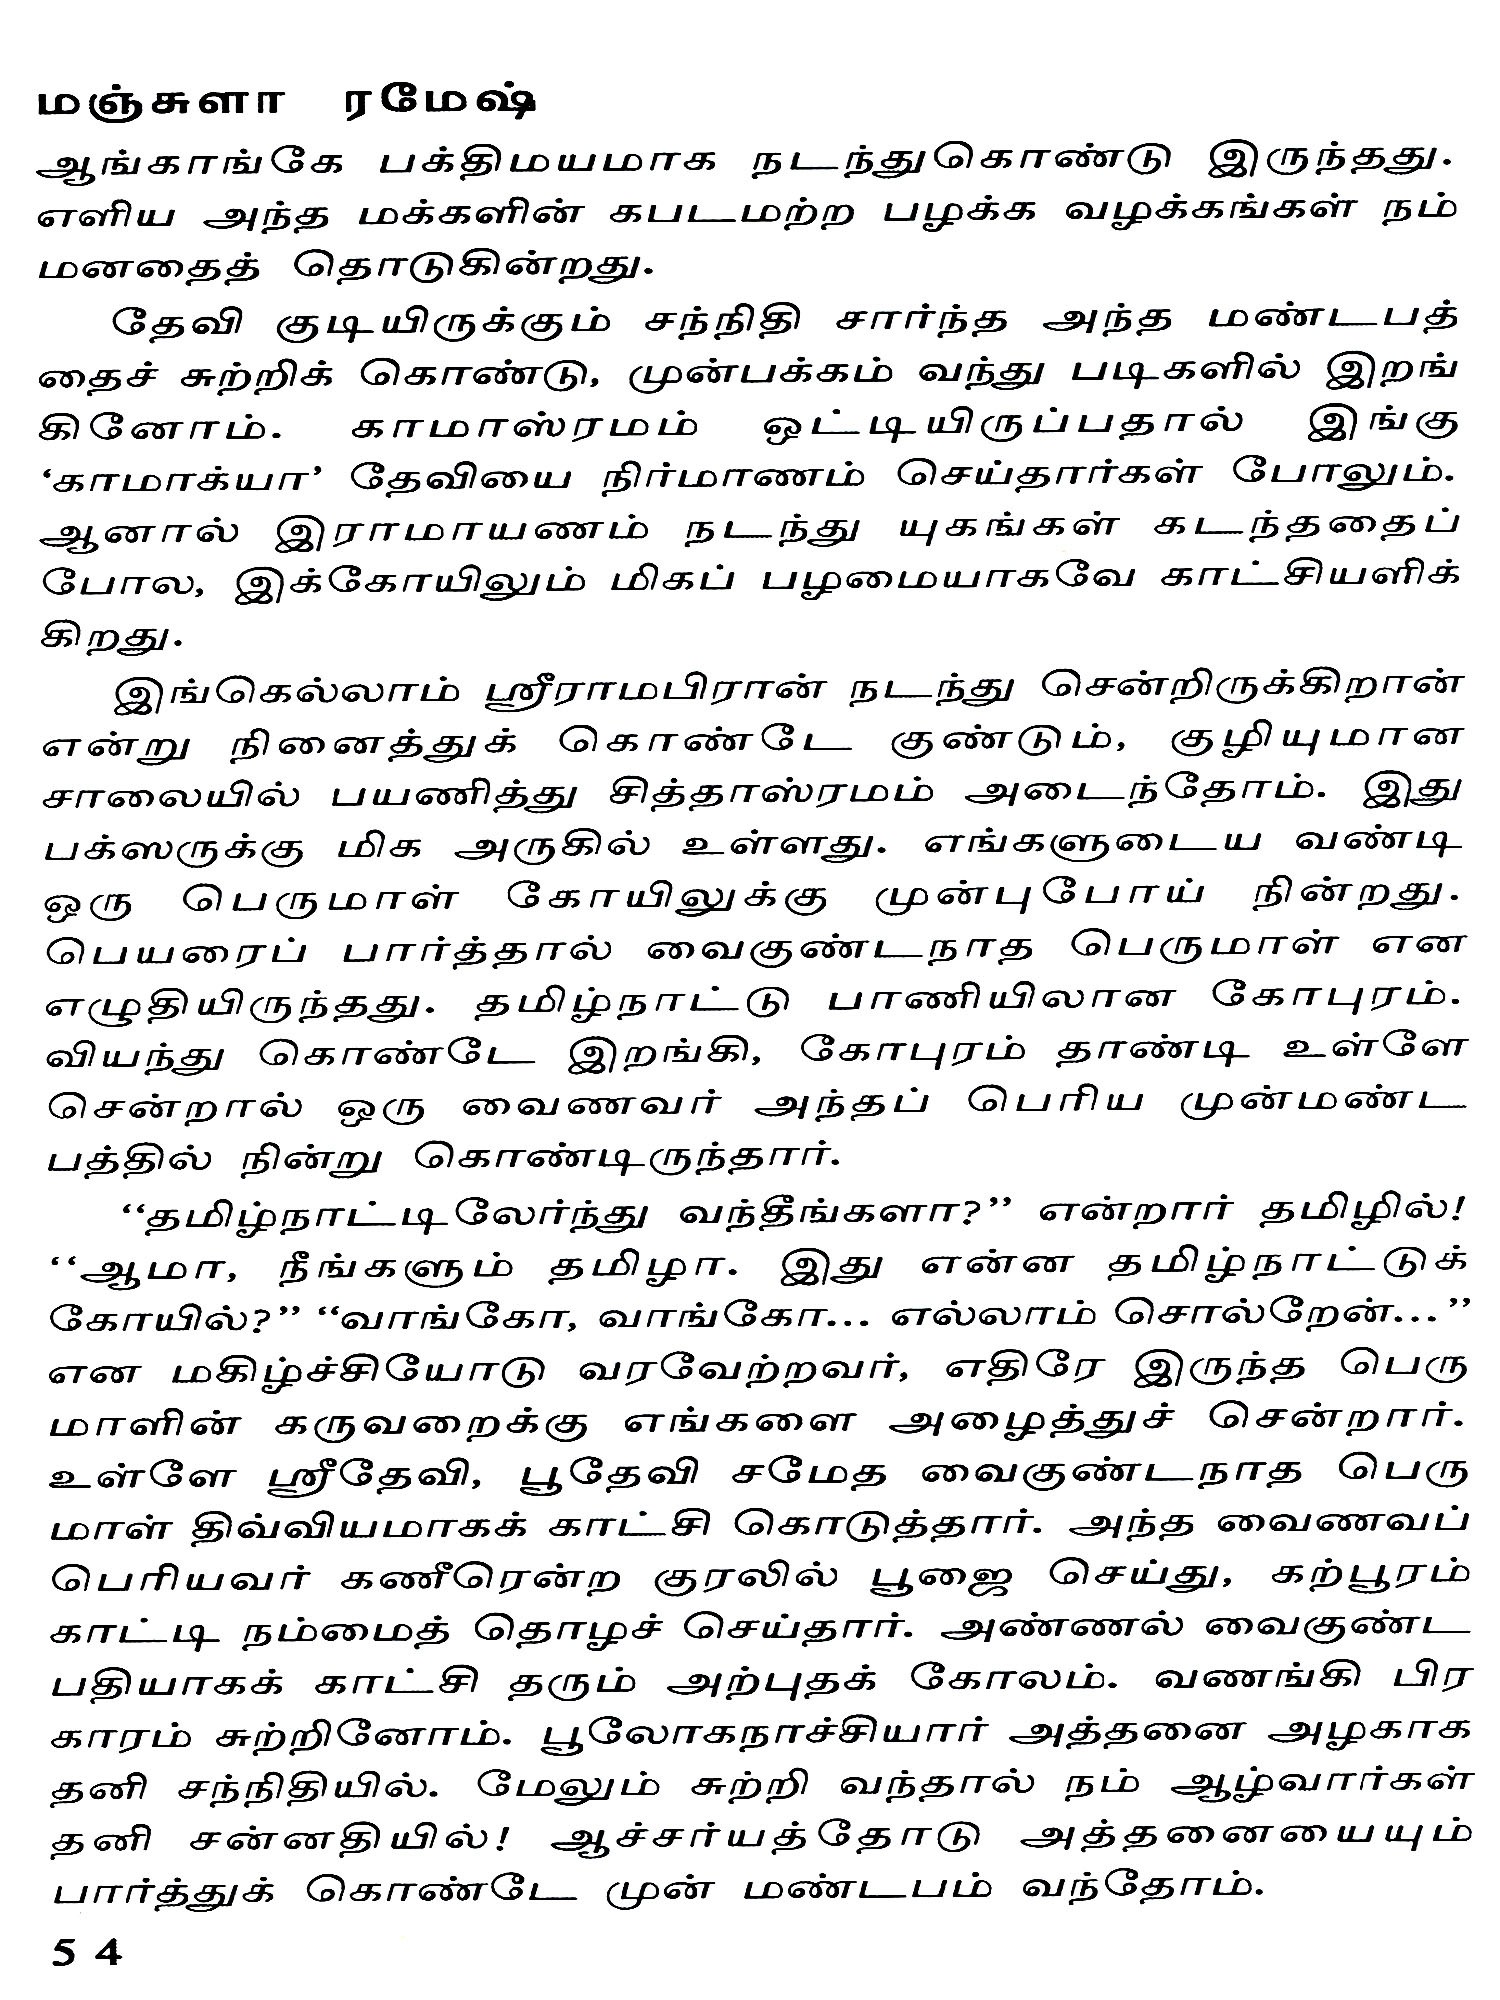 மஞ்சுளா ரமேஷ்
ஆங்காங்கே பக்திமயமாக நடந்துகொண்டு இருந்தது.
எளிய அந்த மக்களின் கபடமற்ற பழக்க வழக்கங்கள் நம்
மனதைத் தொடுகின்றது.
தேவி குடியிருக்கும் சந்நிதி சார்ந்த அந்த மண்டபத்
தைச் சுற்றிக் கொண்டு, முன்பக்கம் வந்து படிகளில் இறங்
கினோம். காமாஸ்ரமம் ஒட்டியிருப்பதால் இங்கு
‘காமாக்யா’ தேவியை நிர்மாணம் செய்தார்கள் போலும்.
ஆனால் இராமாயணம் நடந்து யுகங்கள் கடந்ததைப்
போல, இக்கோயிலும் மிகப் பழமையாகவே காட்சியளிக்
கிறது.
இங்கெல்லாம் ஸ்ரீராமபிரான் நடந்து சென்றிருக்கிறான்
என்று நினைத்துக் கொண்டே குண்டும், குழியுமான
சாலையில் பயணித்து சித்தாஸ்ரமம் அடைந்தோம். இது
பக்ஸருக்கு மிக அருகில் உள்ளது. எங்களுடைய வண்டி
ஒரு பெருமாள் கோயிலுக்கு முன்புபோய் நின்றது.
பெயரைப் பார்த்தால் வைகுண்டநாத பெருமாள் என
எழுதியிருந்தது. தமிழ்நாட்டு பாணியிலான கோபுரம்.
வியந்து கொண்டே இறங்கி, கோபுரம் தாண்டி உள்ளே
சென்றால் ஒரு வைணவர் அந்தப் பெரிய முன்மண்ட
பத்தில் நின்று கொண்டிருந்தார்.
“தமிழ்நாட்டிலேர்ந்து வந்தீங்களா?” என்றார் தமிழில்!
“ஆமா, நீங்களும் தமிழா. இது என்ன தமிழ்நாட்டுக்
கோயில்?” “வாங்கோ, வாங்கோ... எல்லாம் சொல்றேன்...”
என மகிழ்ச்சியோடு வரவேற்றவர், எதிரே இருந்த பெரு
மாளின் கருவறைக்கு எங்களை அழைத்துச் சென்றார்.
உள்ளே ஸ்ரீதேவி, பூதேவி சமேத வைகுண்டநாத பெரு
மாள் திவ்வியமாகக் காட்சி கொடுத்தார். அந்த வைணவப்
பெரியவர் கணீரென்ற குரலில் பூஜை செய்து, கற்பூரம்
காட்டி நம்மைத் தொழச் செய்தார். அண்ணல் வைகுண்ட
பதியாகக் காட்சி தரும் அற்புதக் கோலம். வணங்கி பிர
காரம் சுற்றினோம். பூலோகநாச்சியார் அத்தனை அழகாக
தனி சந்நிதியில். மேலும் சுற்றி வந்தால் நம் ஆழ்வார்கள்
தனி சன்னதியில்! ஆச்சர்யத்தோடு அத்தனையையும்
பார்த்துக் கொண்டே முன் மண்டபம் வந்தோம்.
54